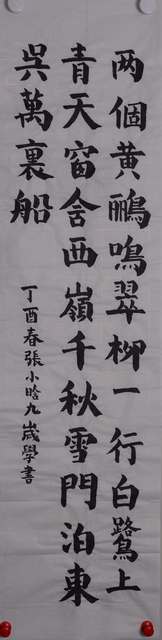 两個黄鸝鳴翠柳一行白鷺上
青天窗含西嶺千秋雪門泊東
吳萬裏船
丁酉春張小晗九歲學書